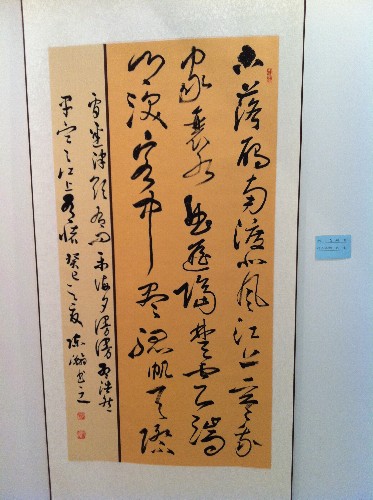 木落雁南渡北風江上寒我
家襄水曲遥隔楚雲端
鄉淚客中盡孤帆天際
看迷津欲有問平海夕漫漫孟浩然
早寒江上有懷癸巳之夏